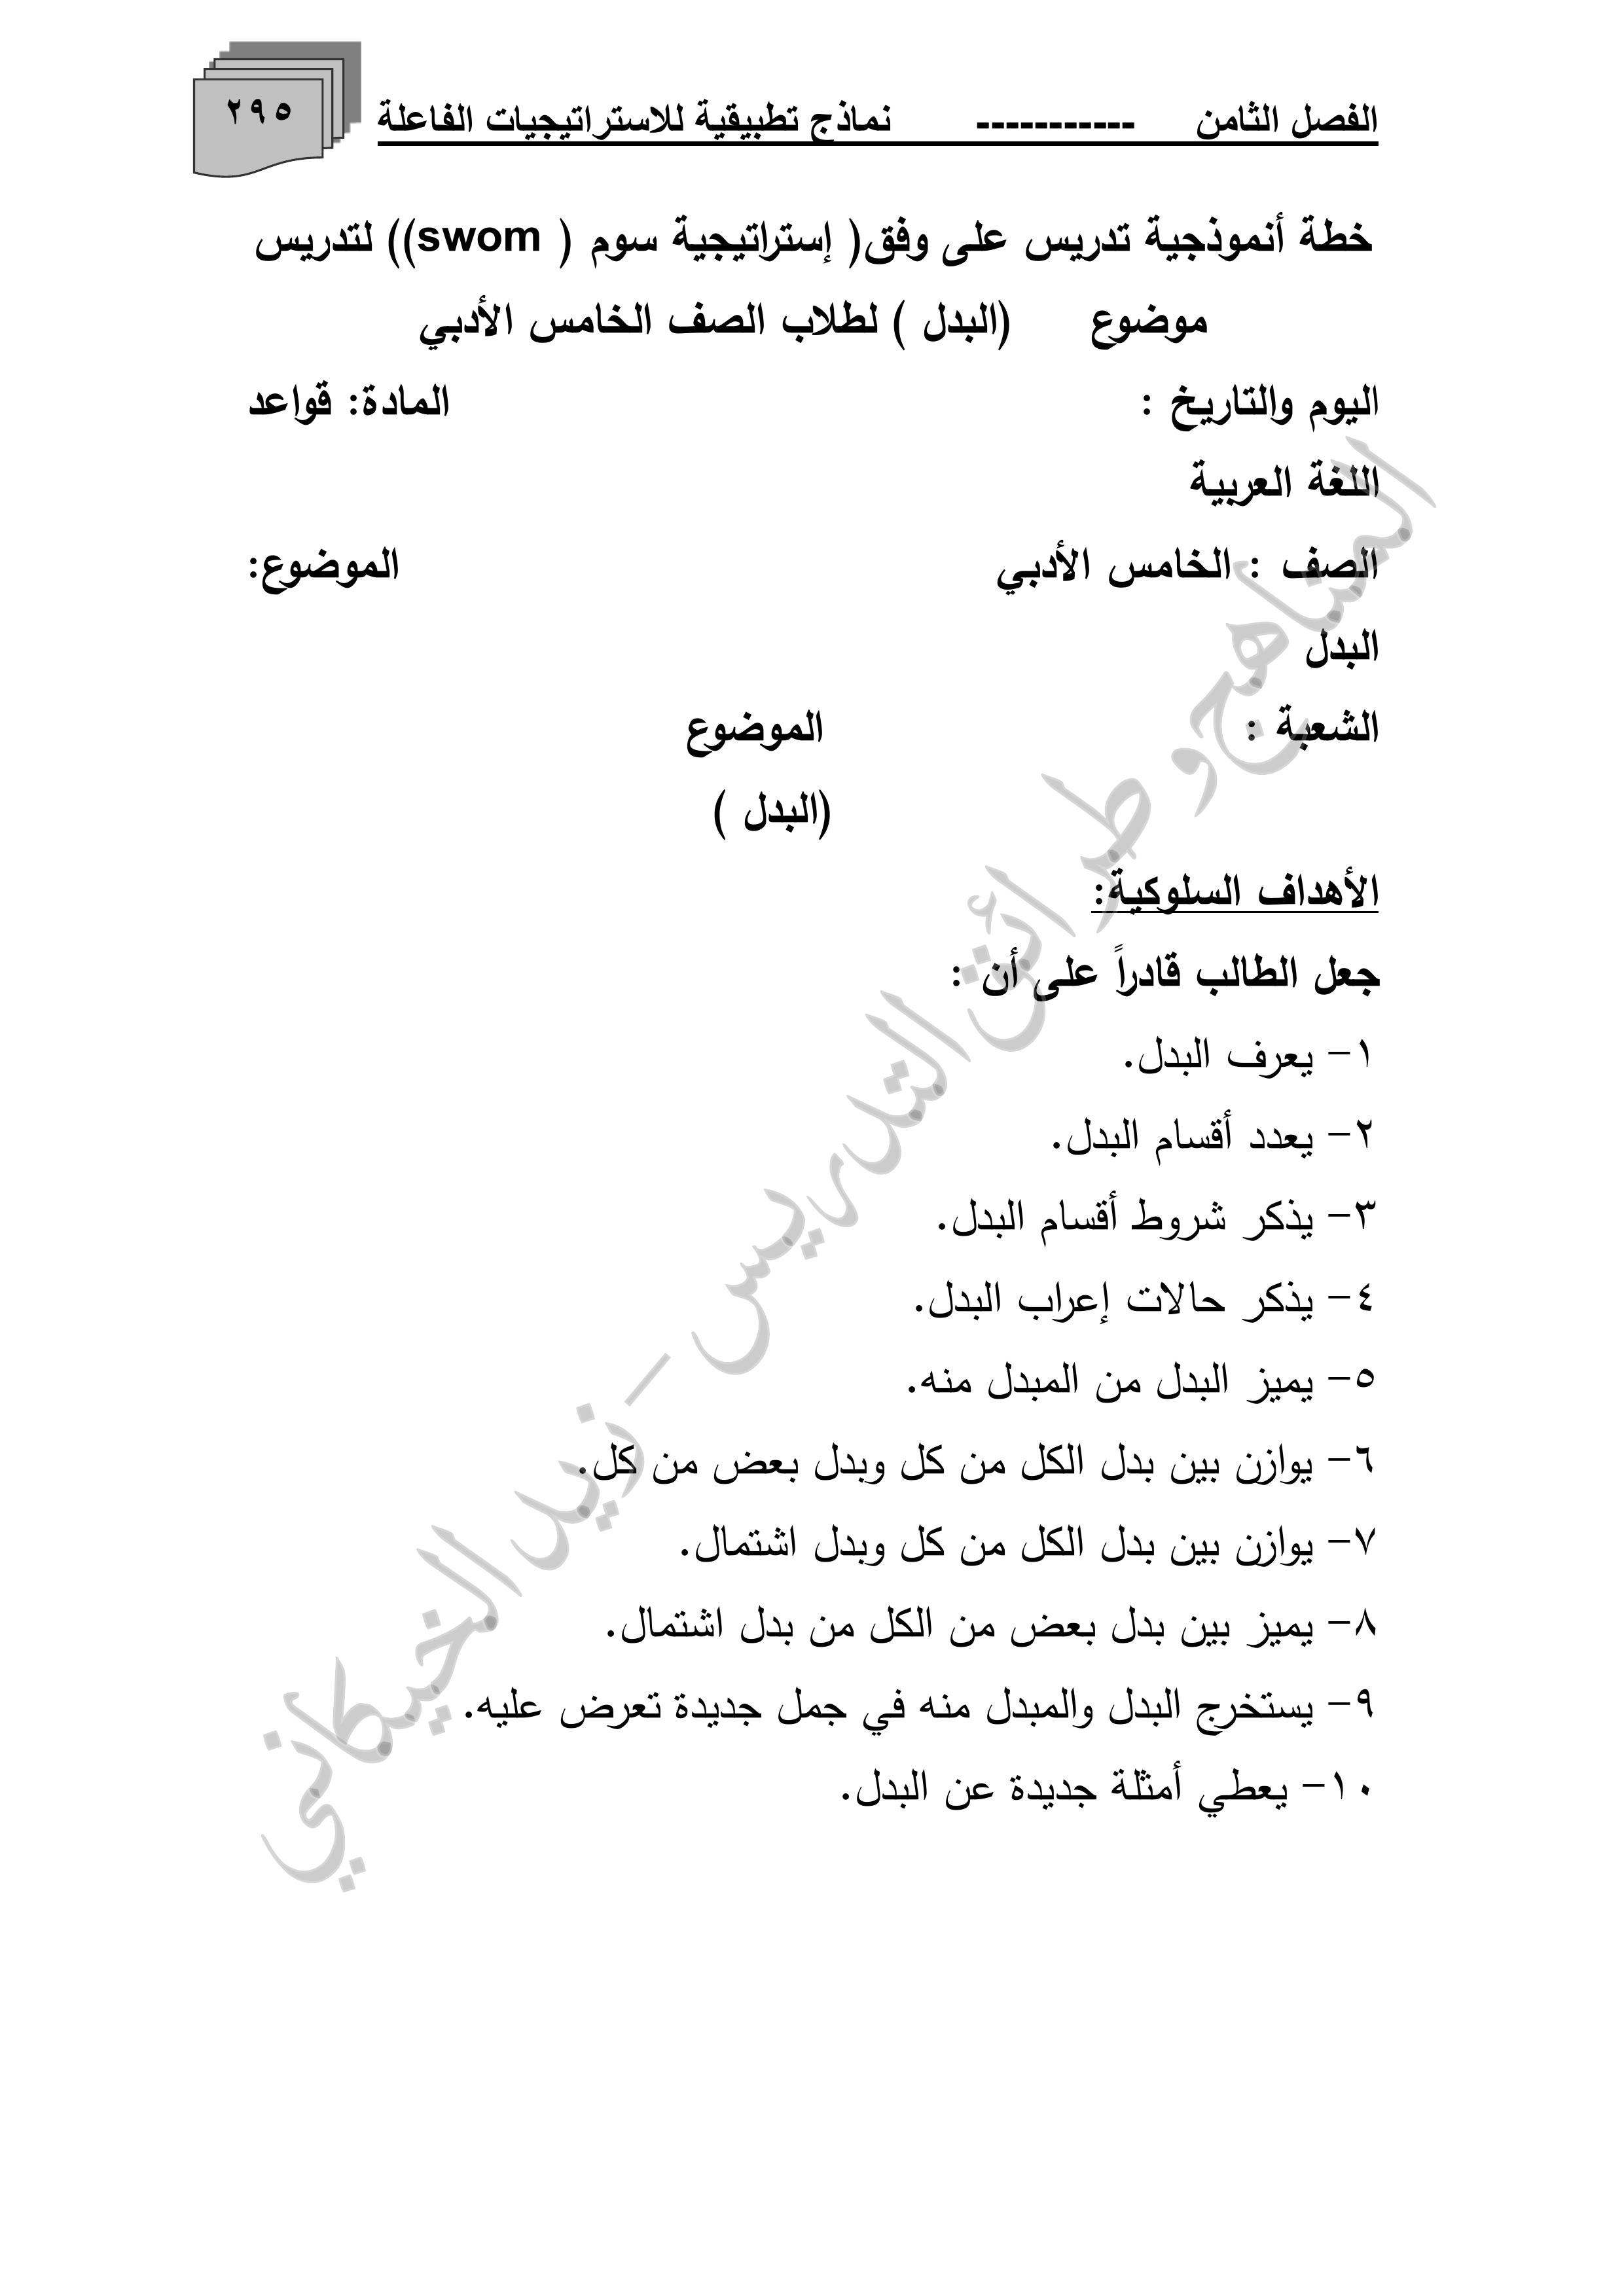 الفصل الثامن ----------- نماذج تطبيقية للاستراتيجيات الفاعلة
٢٩٥
خطة أنموذجية تدريس على وفق( إستراتيجية سوم ( swom)) لتدريس
موضوع (البدل ) لطلاب الصف الخامس الأدبي
اليوم والتاريخ : المادة: قواعد
اللغة العربية
الصف : الخامس الأدبي الموضوع:
البدل
الشعبة : الموضوع
(البدل )
الأهداف السلوكية:
جعل الطالب قادراً على أن :
١- يعرف البدل.
٢- يعدد أقسام البدل.
٣- يذكر شروط أقسام البدل.
٤- يذكر حالات إعراب البدل.
٥- يميز البدل من المبدل منه.
٦- يوازن بين بدل الكل من كل وبدل بعض من كل.
٧- يوازن بين بدل الكل من كل وبدل اشتمال.
٨- يميز بين بدل بعض من الكل من بدل اشتمال.
٩- يستخرج البدل والمبدل منه في جمل جديدة تعرض عليه.
١٠- يعطي أمثلة جديدة عن البدل.
المناهج وطرائق التدريس - زيد الخيكاني